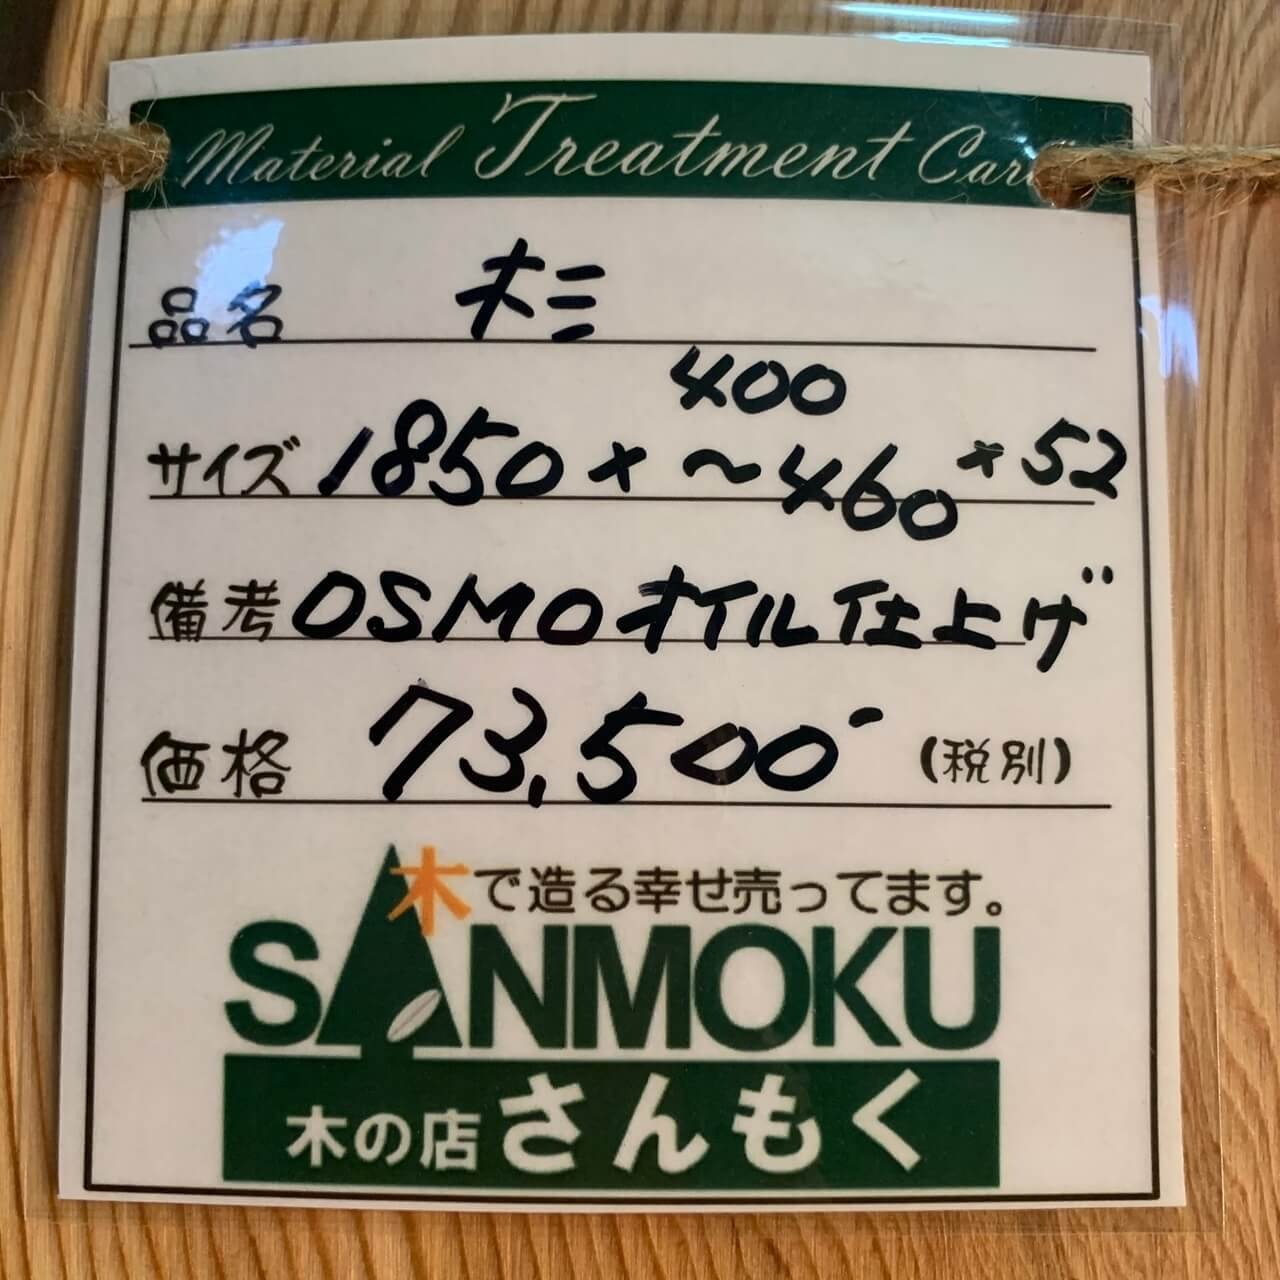 Material Treatment Car
品名 杉
サイズ 1850 × 400 ~ 460 × 52
備考 OSMOオイル仕上げ
価格 73,500- (税別)
木で造る幸せ売ってます。
SANMOKU
木の店 さんもく